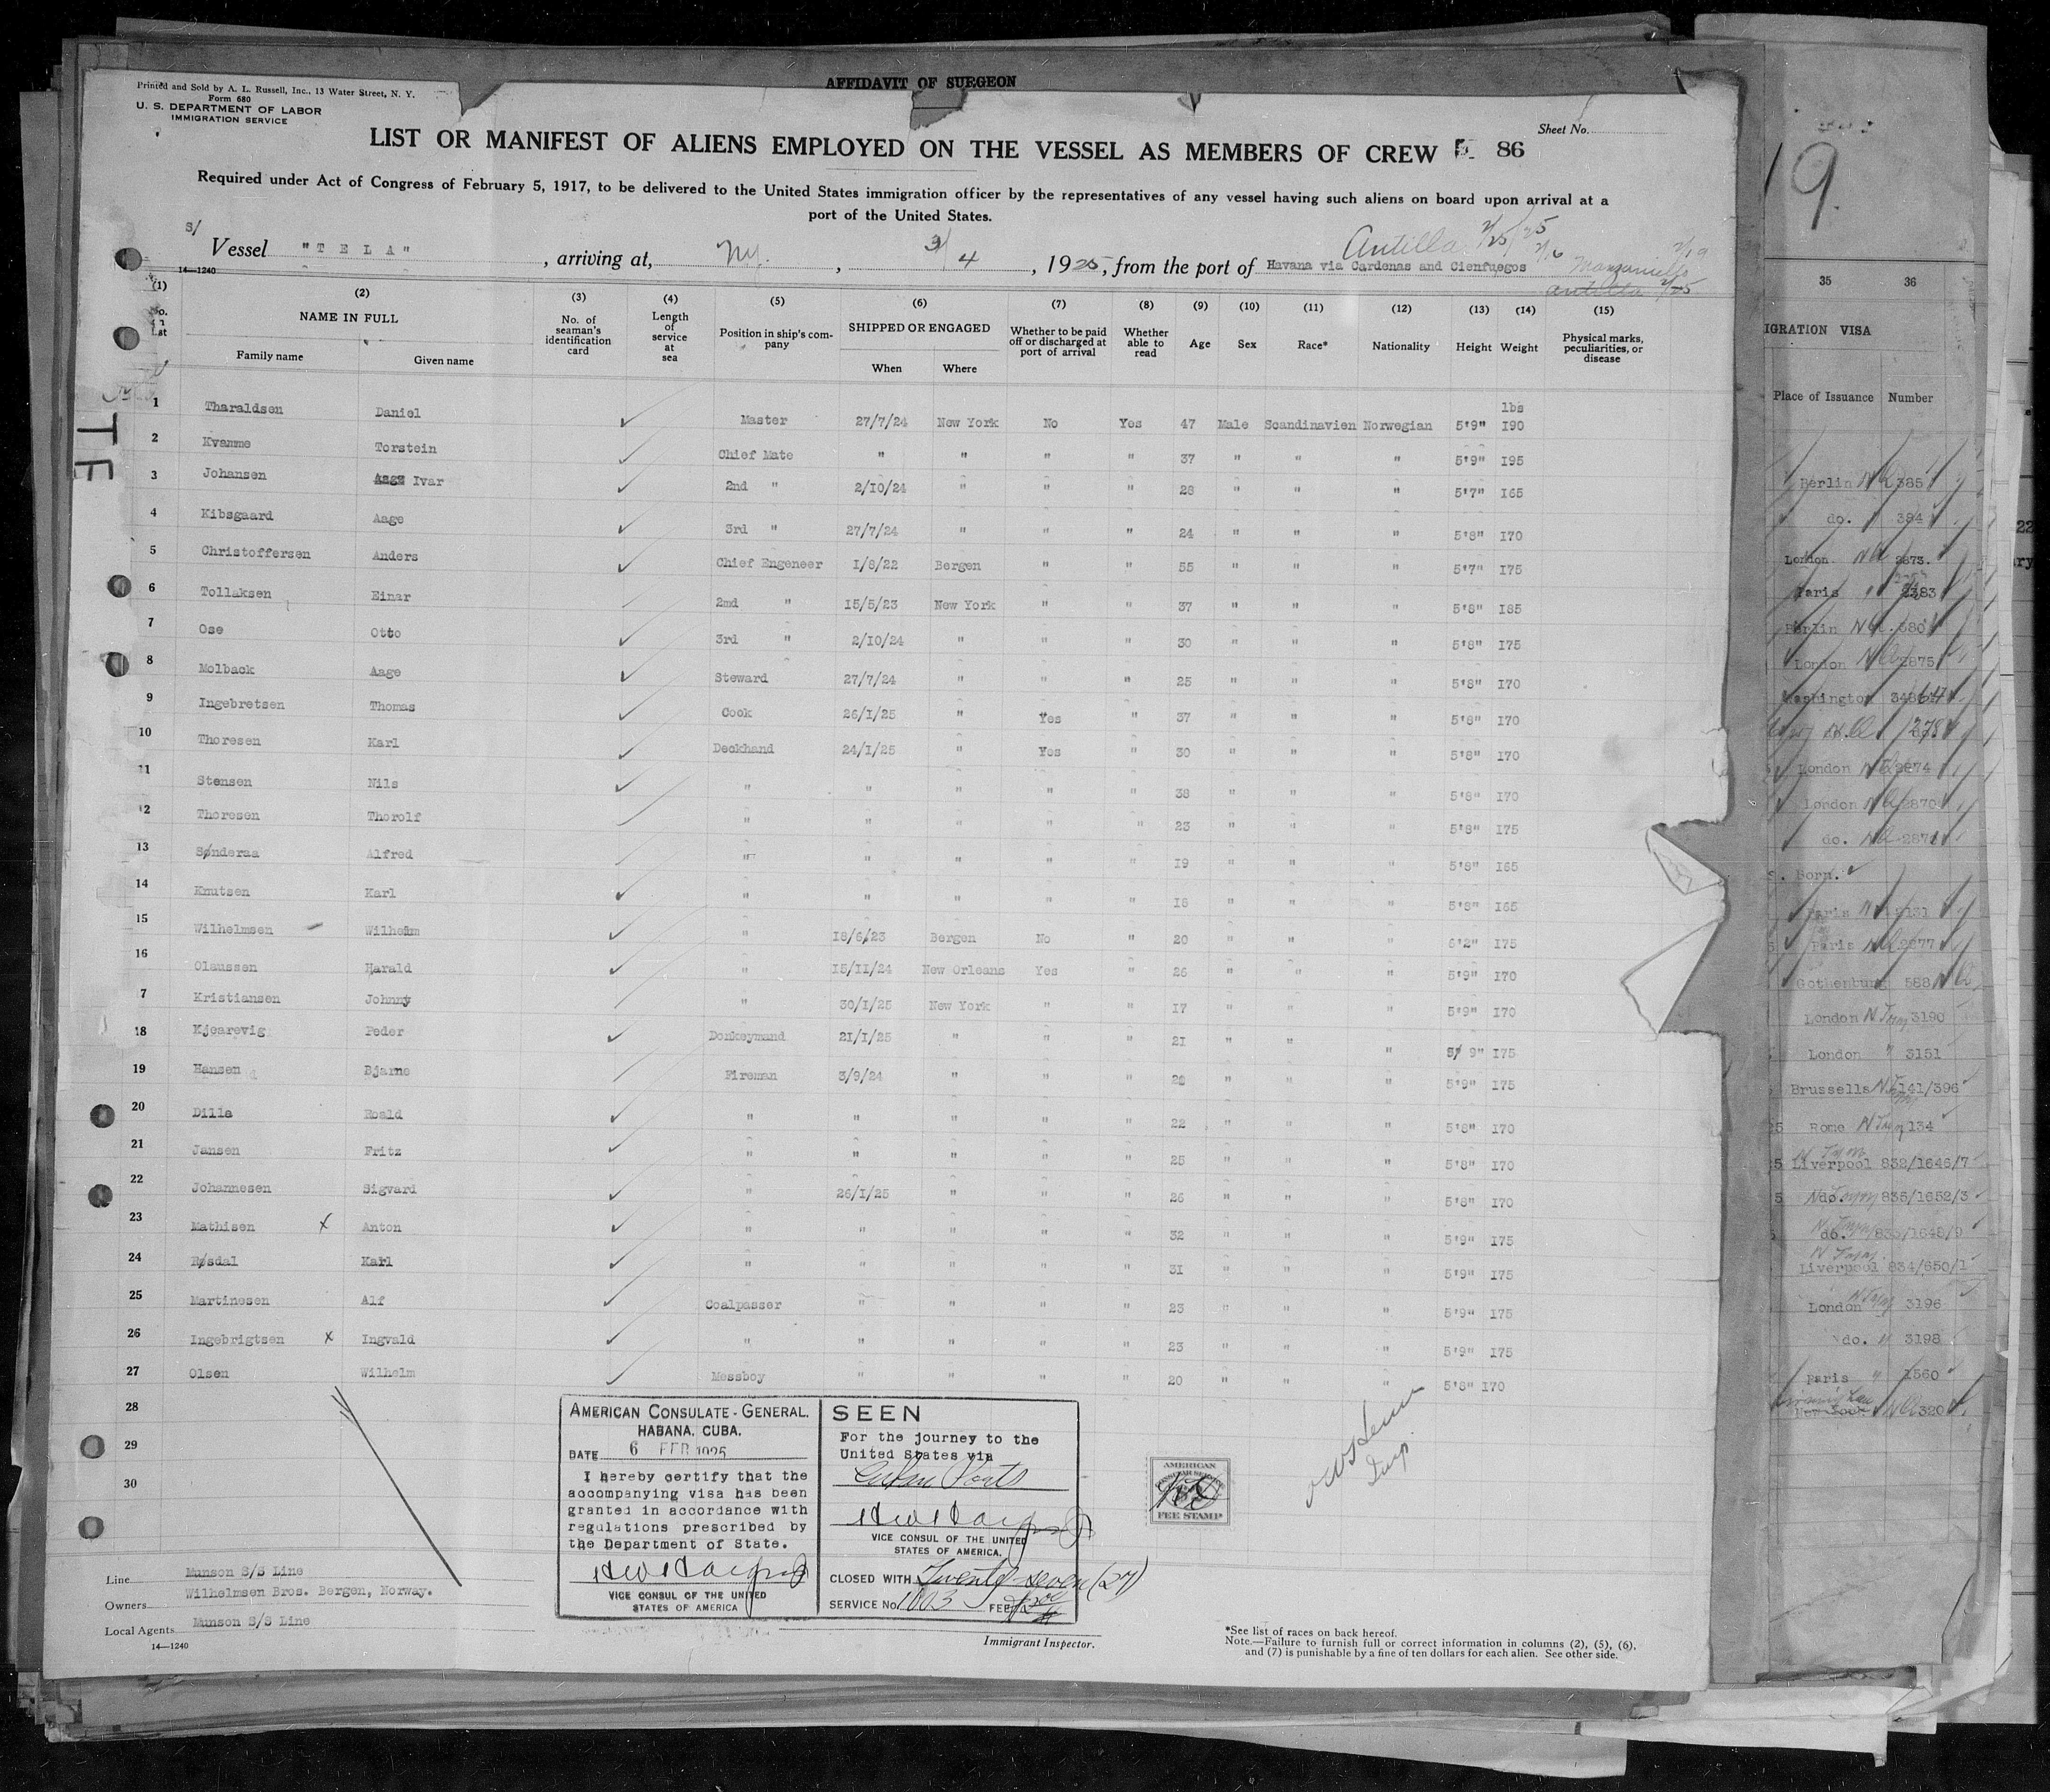 AFFIDAVIT OF SURGEON
Printed and Sold by A. L. Russell, Inc., 13 Water Street, N. Y.
Form 680
U. S. DEPARTMENT OF LABOR
IMMIGRATION SERVICE
Sheet No.
LIST OR MANIFEST OF ALIENS EMPLOYED ON THE VESSEL AS MEMBERS OF CREW 86
Required under Act of Congress of February 5, 1917, to be delivered to the United States immigration officer by the representatives of any vessel having such aliens on board upon arrival at a
port of the United States.
Antilla 2/25/25
S/ Vessel "TELA", arriving at, N.Y., 3/4, 1925, from the port of Havana via Cardenas and Cienfuegos 2/16 Manzanillo 2/19
Antilla 2/25
14—1240
(1) (2) (3) (4) (5) (6) (7) (8) (9) (10) (11) (12) (13) (14) (15)
NAME IN FULL
Family name Given name
No. of seaman's identification card
Length of service at sea
Position in ship's company
SHIPPED OR ENGAGED
When Where
Whether to be paid off or discharged at port of arrival
Whether able to read
Age Sex Race* Nationality Height Weight
Physical marks, peculiarities, or disease
1 Tharaldsen Daniel Master 27/7/24 New York No Yes 47 Male Scandinavien Norwegian 5'9" lbs I90
2 Kvamme Torstein Chief Mate " " " " 37 " " " 5'9" I95
3 Johansen Aage Ivar 2nd " 2/10/24 " " " 28 " " " 5'7" I65
4 Kibsgaard Aage 3rd " 27/7/24 " " " 24 " " " 5'8" I70
5 Christoffersen Anders Chief Engeneer I/8/22 Bergen " " 55 " " " 5'7" I75
6 Tollaksen Einar 2md " I5/5/23 New York " " 37 " " " 5'8" I85
7 Ose Otto 3rd " 2/IO/24 " " " 30 " " " 5'8" I75
8 Molback Aage Steward 27/7/24 " " " 25 " " " 5'8" I70
9 Ingebretsen Thomas Cook 26/I/25 " Yes " 37 " " " 5'8" I70
10 Thoresen Karl Deckhand 24/I/25 " Yes " 30 " " " 5'8" I70
11 Stensen Nils " " " " " 38 " " " 5'8" I70
12 Thoresen Thorolf " " " " " 23 " " " 5'8" I75
13 Sønderaa Alfred " " " " " I9 " " " 5'8" I65
14 Knutsen Karl " " " " " I8 " " " 5'8" I65
15 Wilhelmsen Wilhelm " I8/6/23 Bergen No " 20 " " " 6'2" I75
16 Olaussen Harald " I5/II/24 New Orleans Yes " 26 " " " 5'9" I70
7 Kristiansen Johnny " 30/I/25 New York " " I7 " " " 5'9" I70
18 Kjearevig Peder Donkeymand 2I/I/25 " " " 2I " " " 5'9" I75
19 Hansen Bjarne Fireman 3/9/24 " " " " " " 5'9" I75
20 Dilla Roald " " " " " 22 " " " 5'8" I70
21 Jansen Fritz " " " " " 25 " " " 5'8" I70
22 Johannesen Sigvard " 26/I/25 " " " 26 " " " 5'8" I70
23 Mathisen x Anton " " " " " 32 " " " 5'9" I75
24 Røsdal Karl " " " " " 3I " " " 5'9" I75
25 Martinesen Alf Coalpasser " " " " 23 " " " 5'9" I75
26 Ingebrigtsen x Ingvald " " " " " 23 " " " 5'9" I75
27 Olsen Wilhelm Messboy " " " " 20 " " " 5'8" I70
28
29
30
AMERICAN CONSULATE-GENERAL.
HABANA. CUBA.
DATE 6 FEB 1925
I hereby certify that the
accompanying visa has been
granted in accordance with
regulations prescribed by
the Department of State.
VICE CONSUL OF THE UNITED
STATES OF AMERICA
SEEN
For the journey to the
United States via
Cuban Ports
VICE CONSUL OF THE UNITED
STATES OF AMERICA.
CLOSED WITH Twenty-seven (27)
SERVICE No. 1003 FEE
AMERICAN
CONSULAR SERVICE
FEE STAMP
Insp.
Line Munson S/S Line
Owners Wilhelmsen Bros. Bergen, Norway.
Local Agents Munson S/S Line
14—1240
Immigrant Inspector.
*See list of races on back hereof.
Note.—Failure to furnish full or correct information in columns (2), (5), (6),
and (7) is punishable by a fine of ten dollars for each alien. See other side.
TE
19.
35 36
IGRATION VISA
Place of Issuance Number
Berlin 385
do. 384
London 2873.
Paris 2383
Berlin 380
London 2875
Washington
London 2874
London 2870
do. 2871
S. Born.
Paris 131
Paris 2877
Gothenburg 588
London 3190
London " 3151
Brussells 141/396
Rome 134
Liverpool 832/1646/7
do. 835/1652/3
do. 833/1648/9
Liverpool 834/650/1
London 3196
do. " 3198
Paris " 1560
New York 320
22
ry